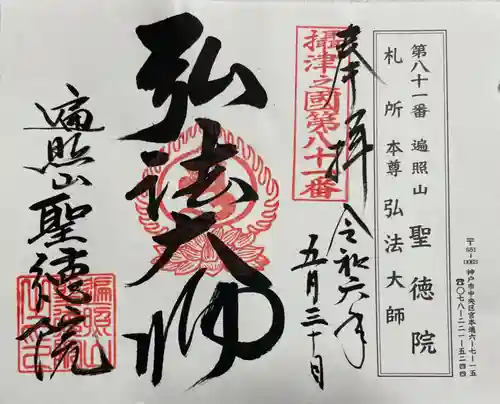 第八十一番 遍照山 聖徳院
札所本尊 弘法大師
〒651-0063 神戸市中央区宮本通六-七-一五
☎〇七八-二二一-五二四四
奉拝
令和六年
五月三十日
攝津之國第八十一番
弘法大師
遍照山聖德院